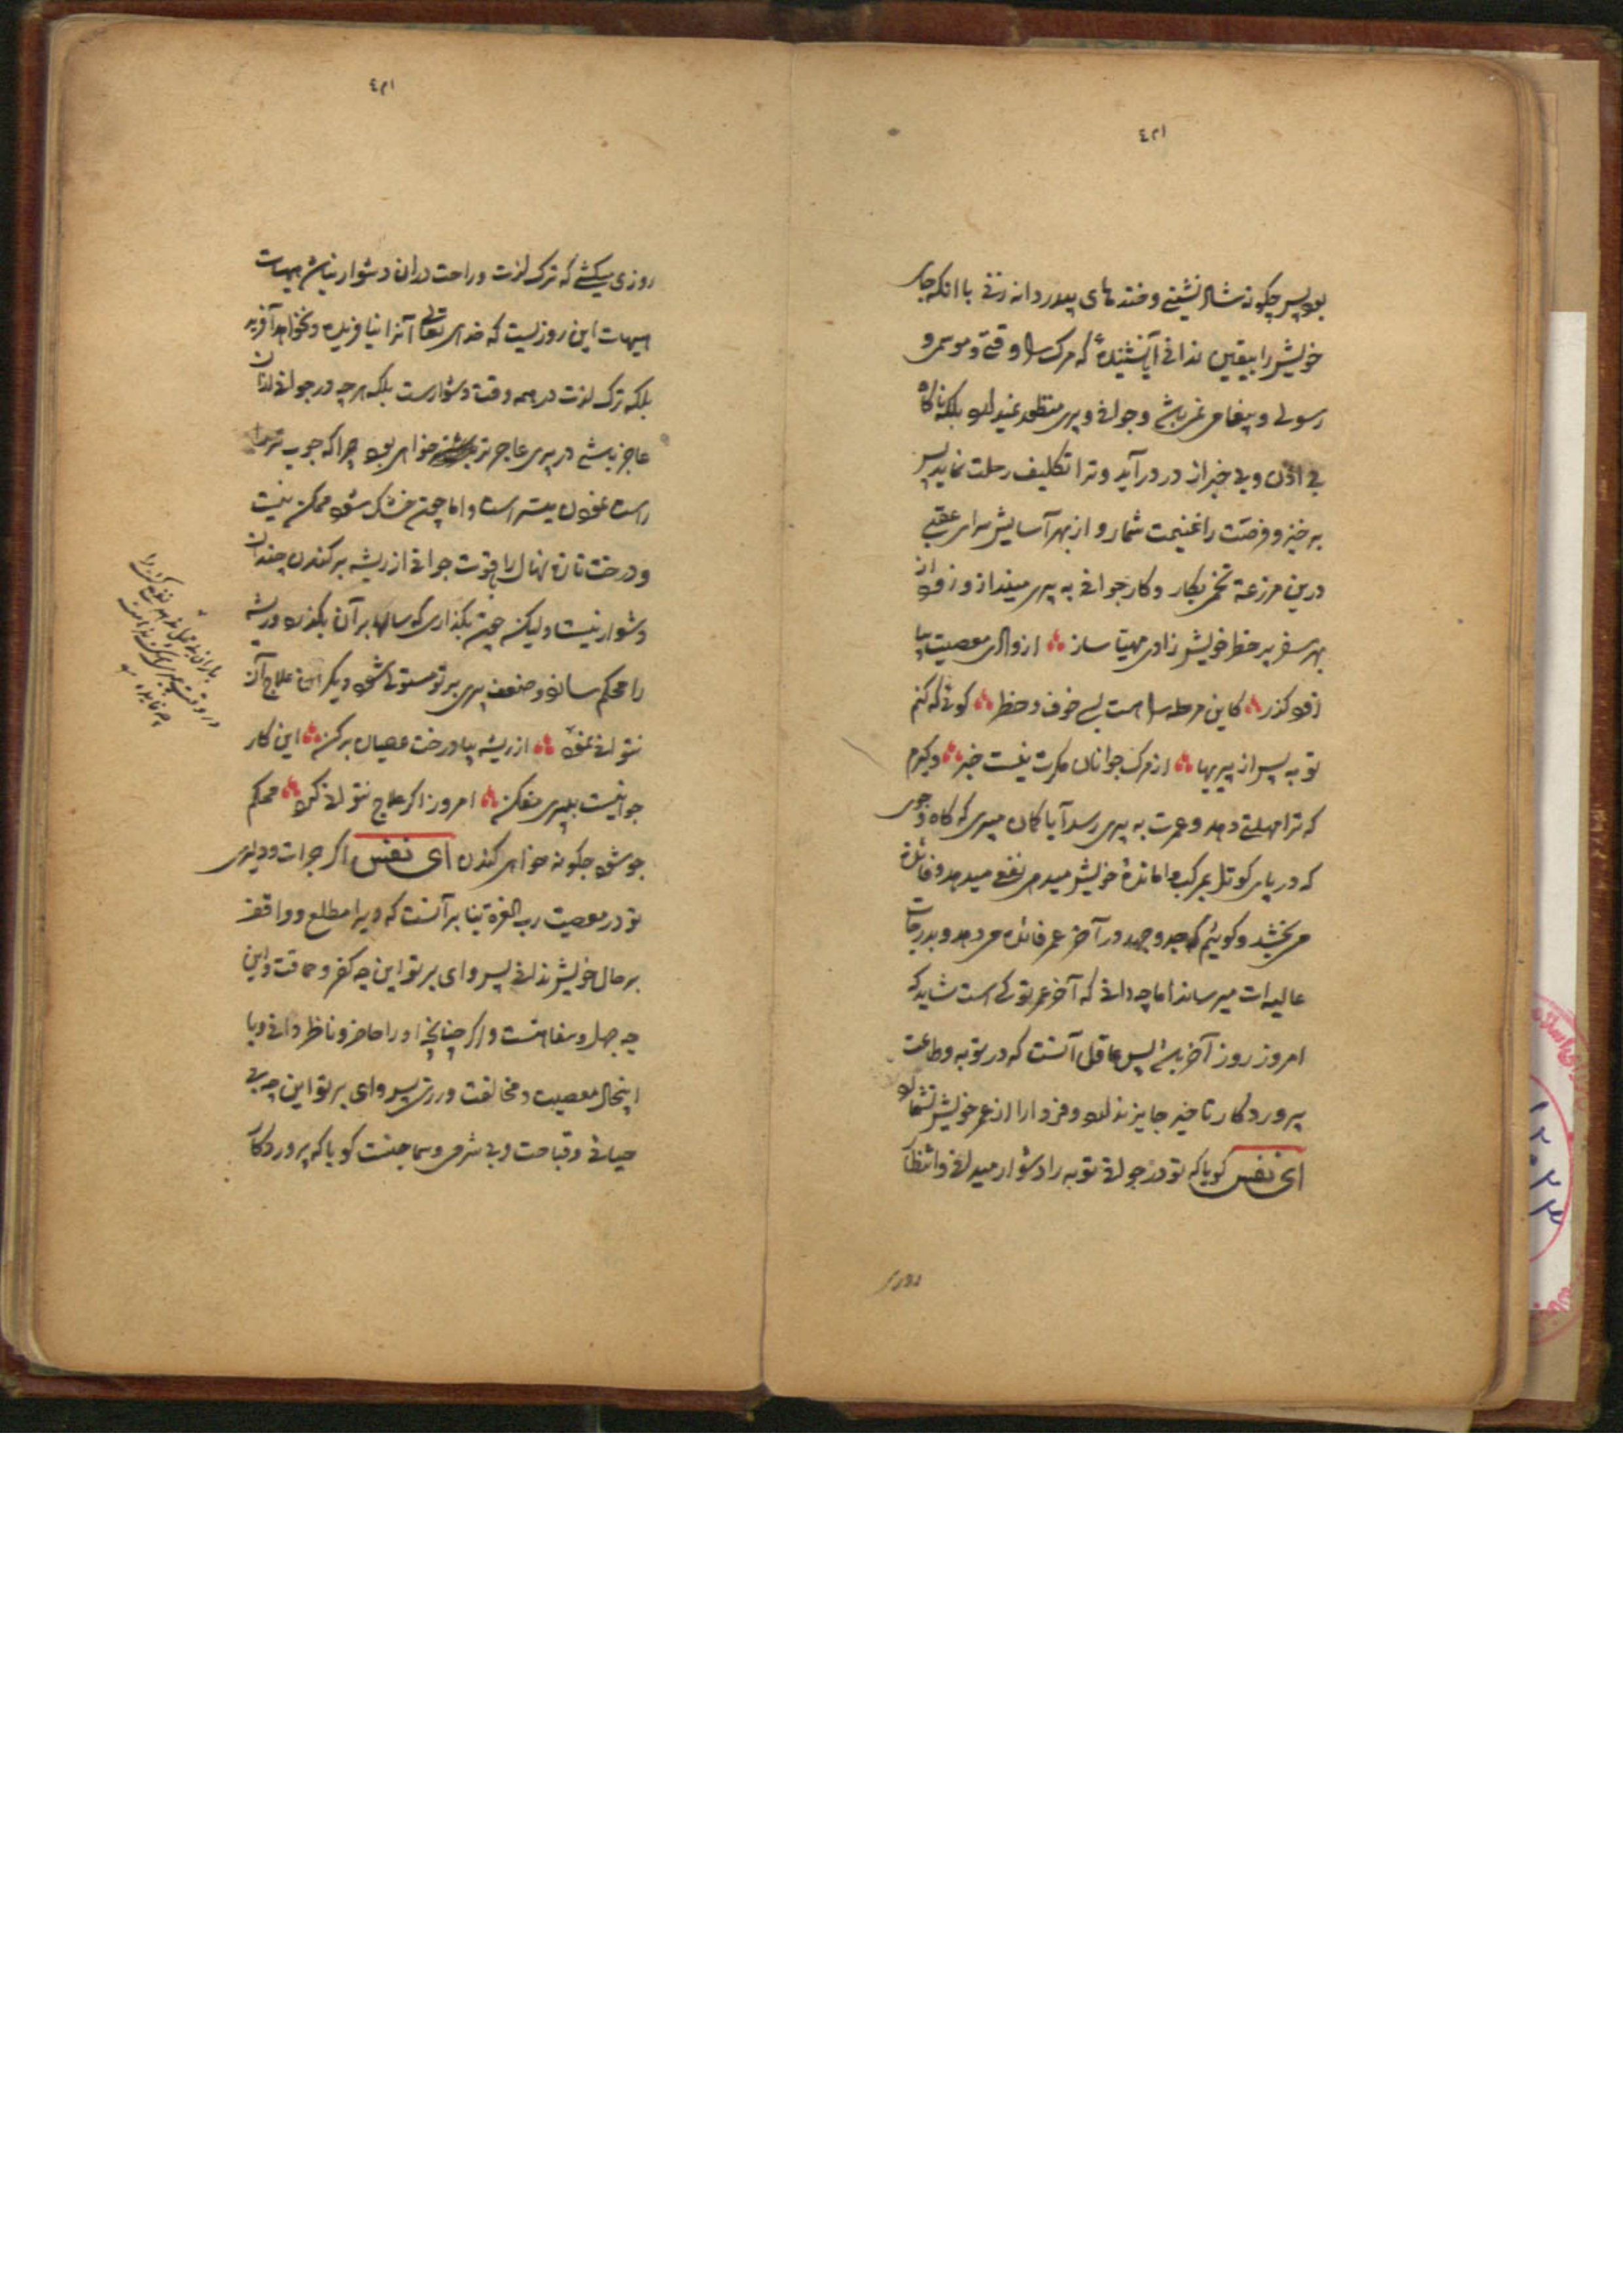 ۴۲۱
بود پس چگونه شاد نشینی و خنده های بیدردانه زنی با انکه جای
خویش را بیقین ندانی آیا نشنیدهٔ که مرک را وقتی و موسمی و
رسولی و پیغامی نمی باشد و جوانی و پیری منظور نمیدارد بلکه ناکاه
بی اذن و بی خبر از در درآید و ترا تکلیف رحلت نماید پس
برخیز و فرصت را غنیمت شمار و از بهر آسایش سرای عقبی
درین مزرعه تخمی بکار و کار جوانی به پیری مینداز و زود از
بهر سفر پر خطر خویش زادی مهیا ساز ؞ از وادی معصیت بیا
زود کذر ؞ کاین مرحله را هست بسی خوف و خطر ؞ کوئی که کنم
توبه پس از پیریها ؞ از مرک جوانان مکرت نیست خبر ؞ و کیرم
که ترا مهلتی دهد و عمرت به پیری رسد آیا کمان میبری که کاه و جوی
که در پای کوتل بمرکب وامانده خویش میدهی نفعی میدهد و فائده
می بخشد و کوئیم که جد و جهد در آخر عمر فائده می دهد و بدرجات
عالیه ات میرساند اما چه دانی که آخر عمر تو کی است شاید که
امروز روز آخر باشد پس عاقل آنست که در توبه و طاعت
پروردکار تاخیر جایز نداند و فردا را از عمر خویش نشمارد
ای نفس کویا که تو در جوانی توبه را دشوار میدانی و انتظار
روزی
۴۲۱
روزی میکشی که ترک لذت و راحت دران دشوار نباشد هیهات
هیهات این روزیست که خدای تعالی آنرا نیافریده و نخواهد آفرید
بلکه ترک لذت در همه وقت دشوارست بلکه هر چه در جوانی از ان
عاجز باشی در پیری عاجزتر خواهی بود چرا که چوب تر را
راست نمودن میسر است و اما چون خشک شود ممکن نیست
و درخت تازه نهال را بقوت جوانی از ریشه برکندن چندان
دشوار نیست و لیکن چون بکذاری که سالها بر آن بکذرد و ریشه
را محکم سازد و ضعف پیری بر تو مستولی شود دیکر این علاج آن
نتوانی نمود ؞ از ریشه بیا درخت عصیان برکن ؞ این کار
جوانیست به پیری مفکن ؞ امروز اکر علاج نتوانی کرد ؞ محکم
چو شود چکونه خواهی کندن ای نفس اکر جرات و دلیری
تو در معصیت رب العزة بنا بر آنست که ویرا مطلع و واقف
بر حال خویش ندانی پس وای بر تو این چه کفر و حماقت و این
چه جهل و سفاهتست و اکر چنانچه او را حاضر و ناظر دانی و با
اینحال معصیت و مخالفت ورزی پس وای بر تو این چه بی
حیائی و قباحت و بی شرمی و سماجتست کویا که پروردکار